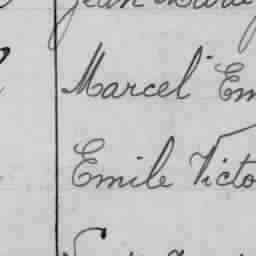 Jean
Marcel Em
Emile Victo